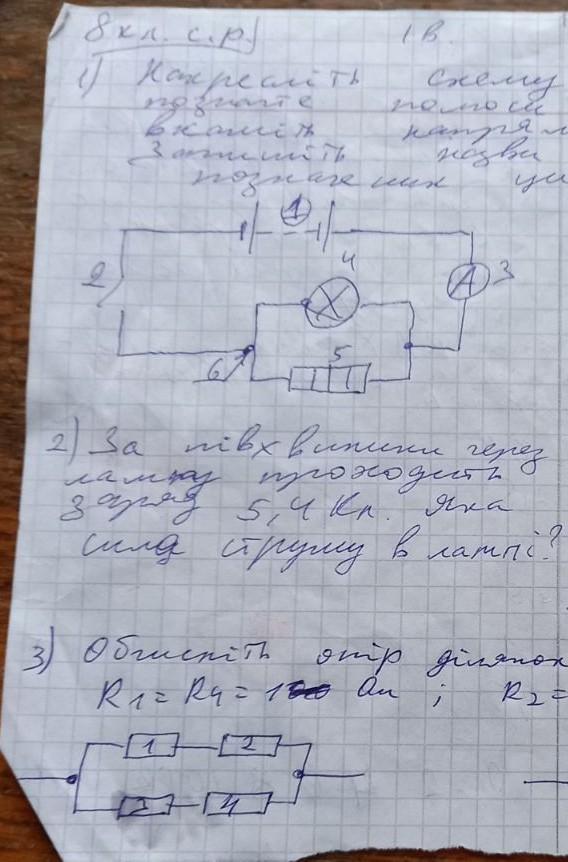 8 кл. с.р. 1 В.
1) Накресліть схему
позначте полюси
вкажіть напрям
Запишіть назви
позначених
1
4
2
A 3
5
6
2) За півхвилини через
лампу проходить
заряд 5,4 Кл. Яка
сила струму в лампі?
3) Обчисліть опір ділянок
R1 = R4 = Ом ; R2 =
1 2
3 4